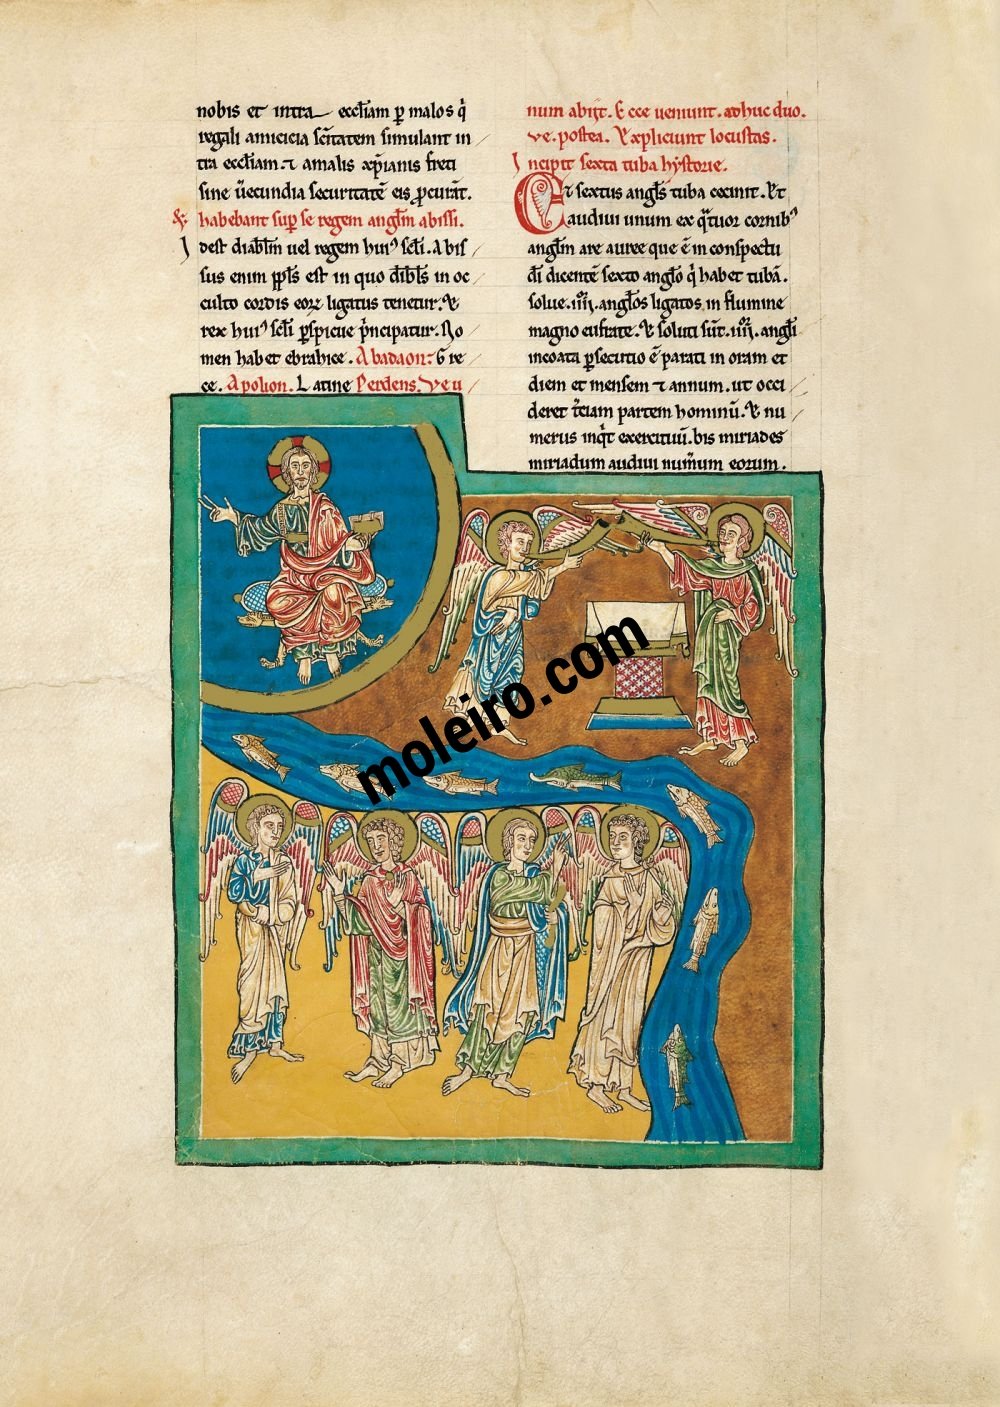 nobis et intra ecctiam p malos q̇
regali amicicia sc̄itatem simulant in
tra ecctiam ⁊ amalis xp̄ianis freti
sine ūecundia securitatē eis p̱curāt.
& habebant sup̱ se regem angłm abissi.
I dest diabłm uel regem huiꝰ sc̄li. Abis
sus enim pp̄ls est in quo dīb̄ls in oc
culto cordis eoꝝ ligatus tenetur. Et
rex huiꝰ sc̄li p̱spicue p̄ncipatur. No
men habet ebrahice. Abadaon: Gre
ce. Apolion. Latine Perdens. Ve u
num abijt. Ecce ueniunt. adhuc duo.
ve. postea. Expliciunt locustas.
Incipit sexta tuba hystorie.
Et sextus angl̄s tuba cecinit. Et
audiui unum ex q̄tuor cornibꝰ
angłm are auree que ē in conspectu
dī dicentē sexto angło q̇ habet tubā.
solue. iiii. angłos ligatos in flumine
magno eufrate. Et soluti sūt. iiii. angłi
incoata p̱secutio ē parati in oram et
diem et mensem ⁊ annum. ut occi
deret t̄ciam partem hominū. Et nu
merus inq̄t exercituū. bis miriades
miriadum audiui num̄um eorum.
moleiro.com